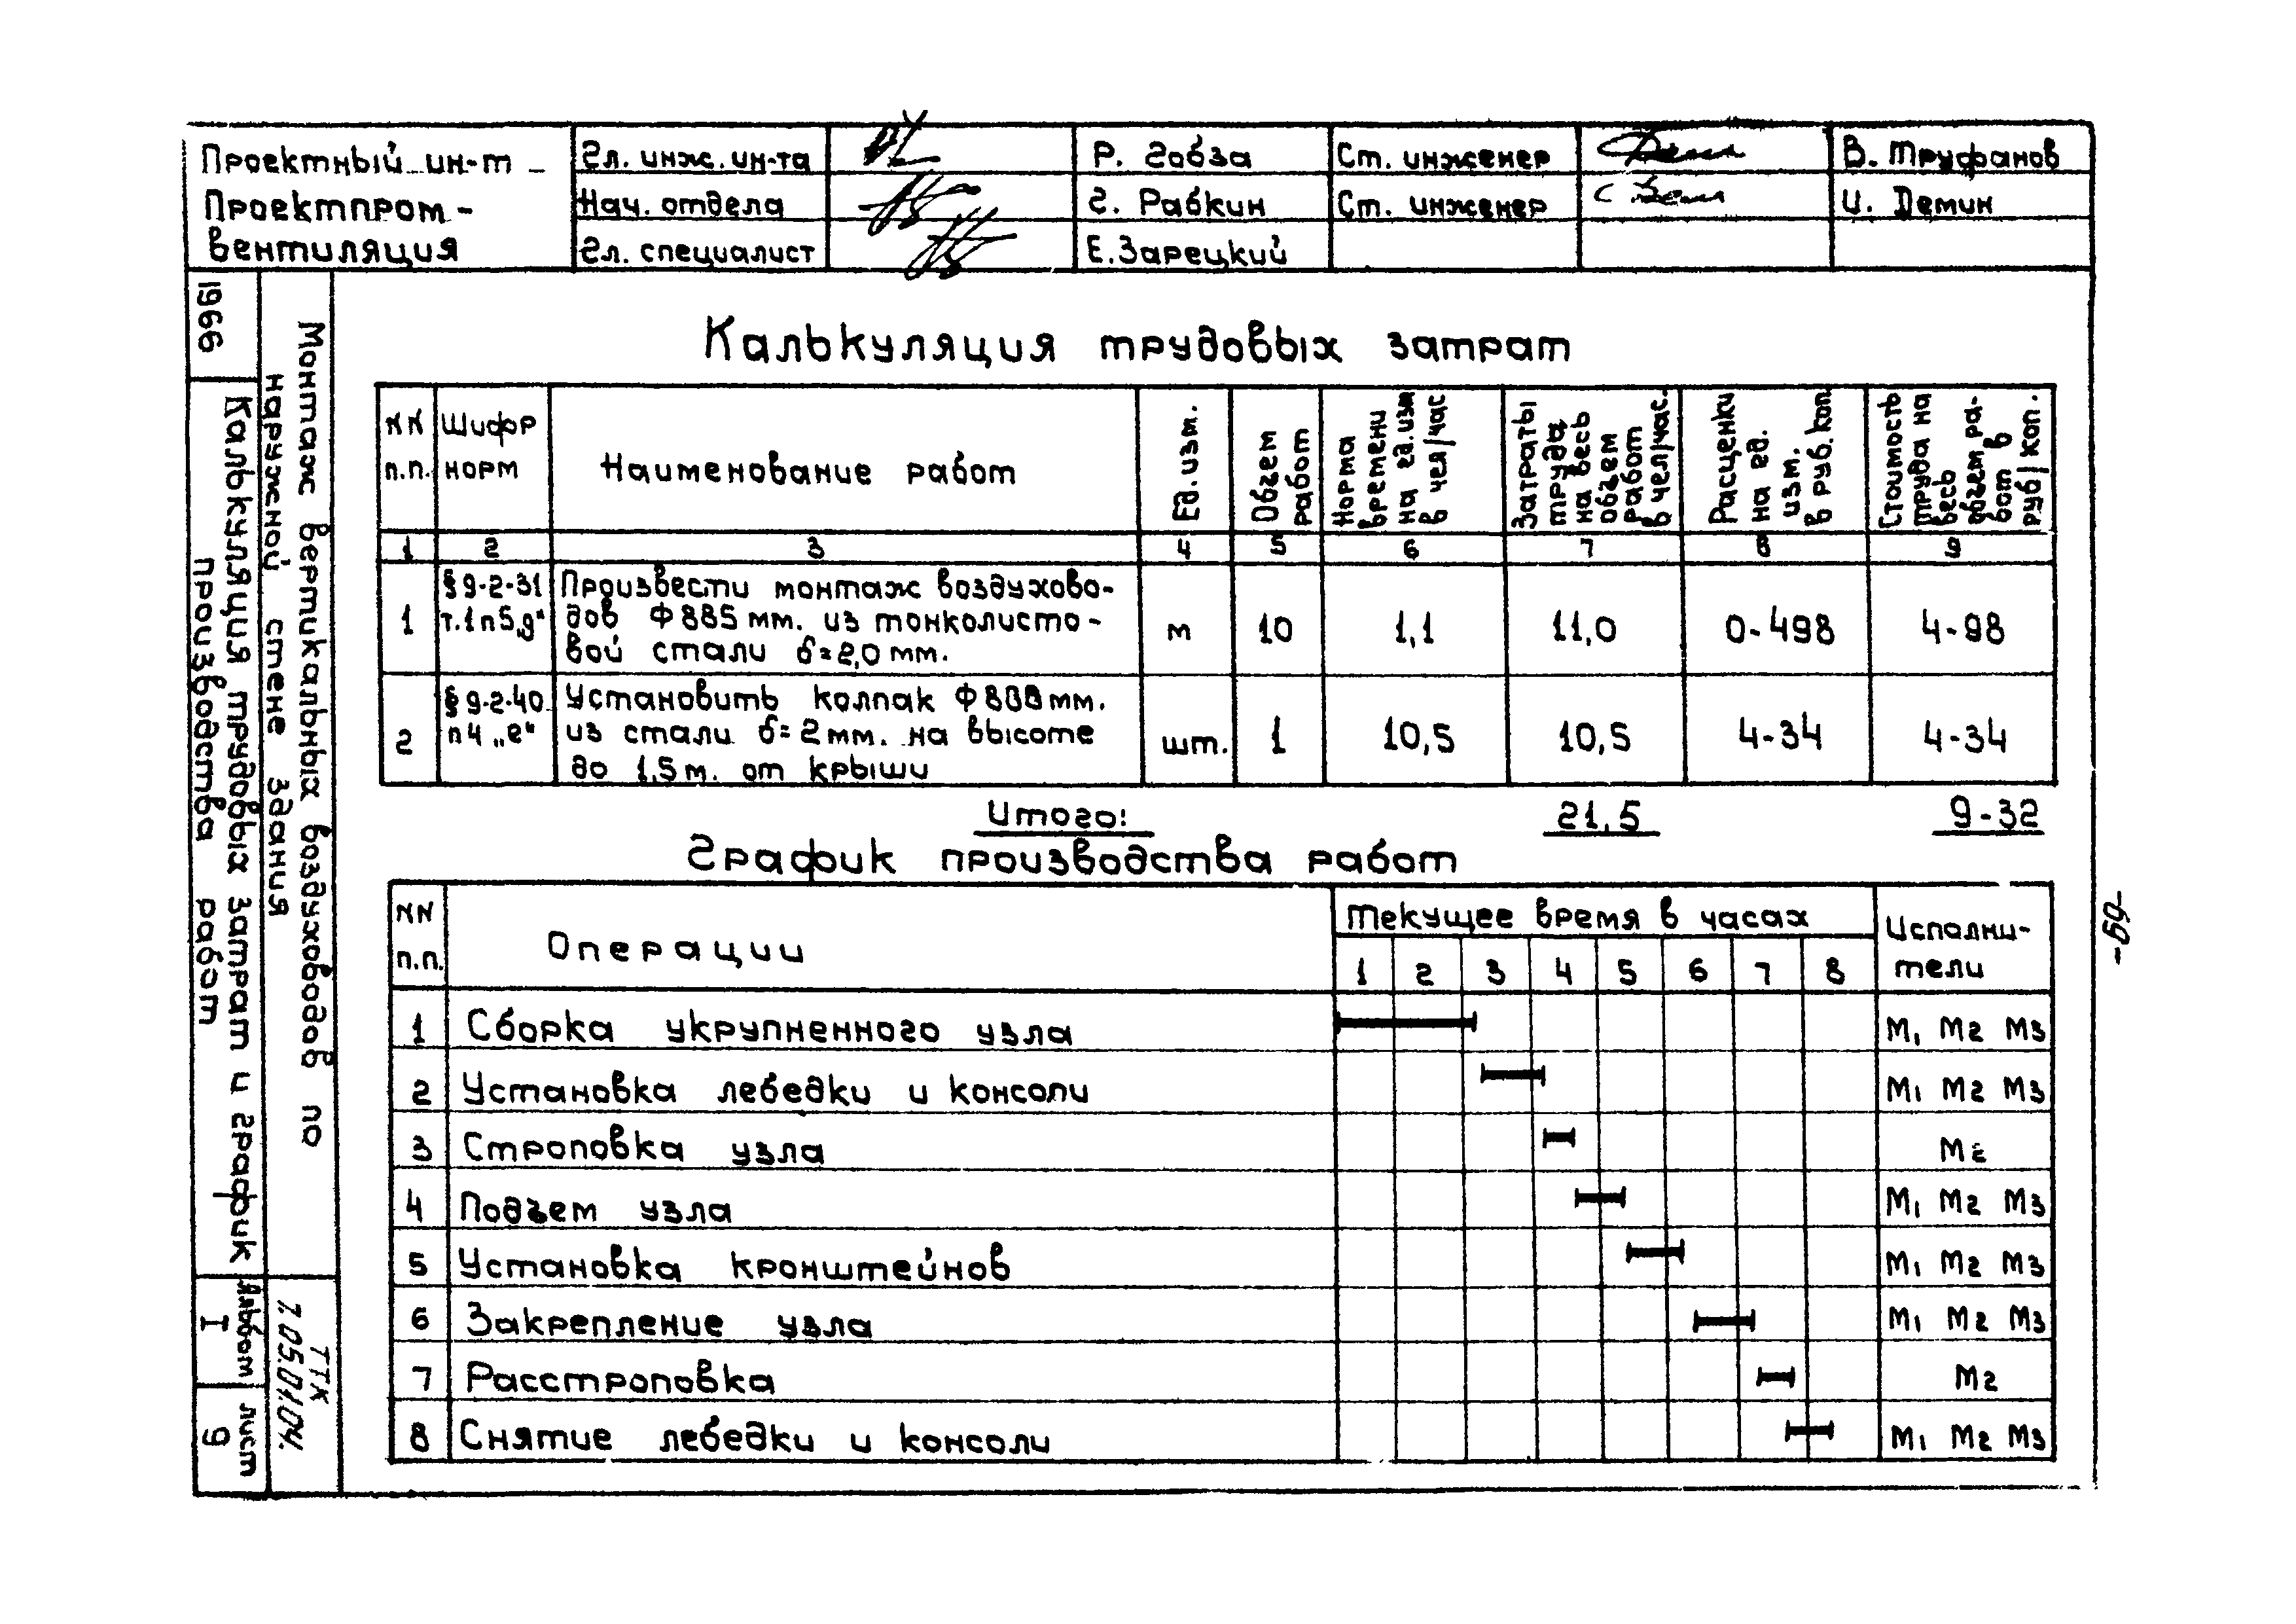 Проектный ин-т
Проектпром-
вентиляция
Гл. инж. ин-та
Р. Гобза
Ст. инженер
В. Труфанов
Нач. отдела
Г. Рабкин
Ст. инженер
И. Демин
Гл. специалист
Е. Зарецкий
1966
Монтаж вертикальных воздуховодов по
наружной стене здания
Калькуляция трудовых затрат и график
производства работ
ТТК
7.05.01.04.
Альбом
I
лист
9
Калькуляция трудовых затрат
NN
п.п.
Шифр
норм
Наименование работ
Ед. изм.
Объем
работ
Норма
времени
на ед. изм
в чел/час
Затраты
труда
на весь
объем
работ
в чел/час.
Расценки
на ед.
изм.
в руб. коп
Стоимость
труда на
весь
объем ра-
бот в
руб/коп.
1 2 3 4 5 6 7 8 9
1
§9-2-31
т.1п5„д“
Произвести монтаж воздухово-
дов Ф885мм. из тонколисто-
вой стали б=2,0мм.
м 10 1,1 11,0 0-498 4-98
2
§9-2-40
п4 „е“
Установить колпак Ф888мм.
из стали б=2мм. на высоте
до 1,5м. от крыши
шт. 1 10,5 10,5 4-34 4-34
Итого: 21,5 9-32
График производства работ
NN
п.п.
Операции
Текущее время в часах
1 2 3 4 5 6 7 8
Исполни-
тели
1 Сборка укрупненного узла М1 М2 М3
2 Установка лебедки и консоли М1 М2 М3
3 Строповка узла М2
4 Подъем узла М1 М2 М3
5 Установка кронштейнов М1 М2 М3
6 Закрепление узла М1 М2 М3
7 Расстроповка М2
8 Снятие лебедки и консоли М1 М2 М3
-59-